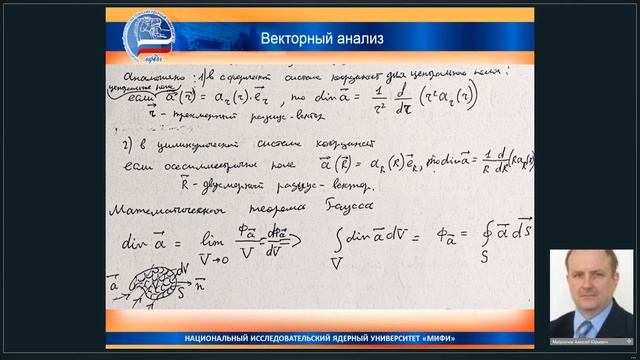 Векторный анализ
Аналогично: 1) в сферической системе координат для центрального поля:
центральное поле
если a⃗(r⃗) = a_r(r)·e⃗_r, то div a⃗ = 1/r² d/dr (r² a_r(r))
r⃗ - трехмерный радиус-вектор
2) в цилиндрической системе координат
если осесимметричное поле a⃗(R⃗) = a_R(R) e⃗_R, то div a⃗ = 1/R d/dR (R a_R(R))
R⃗ - двухмерный радиус-вектор.
Математическая теорема Гаусса
div a⃗ = lim V→0 Φ_a⃗/V = dΦ_a⃗/dV ⇒ ∫_V div a⃗ dV = Φ_a⃗ = ∮_S a⃗ dS⃗
a⃗ dV S n⃗
НАЦИОНАЛЬНЫЙ ИССЛЕДОВАТЕЛЬСКИЙ ЯДЕРНЫЙ УНИВЕРСИТЕТ «МИФИ»
Алексей Юрьевич